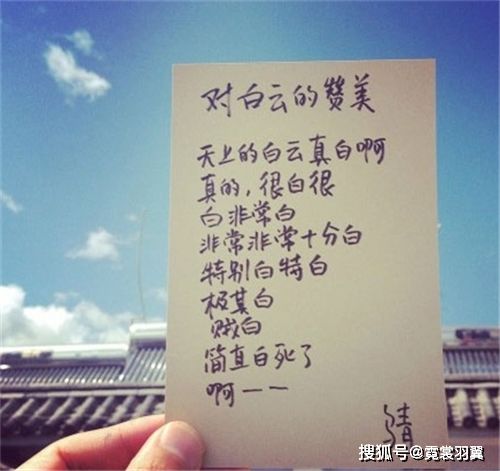 对白云的赞美
天上的白云真白啊
真的,很白很
白非常白
非常非常十分白
特别白特白
极其白
贼白
简直白死了
啊——
清
搜狐号@霓裳羽翼